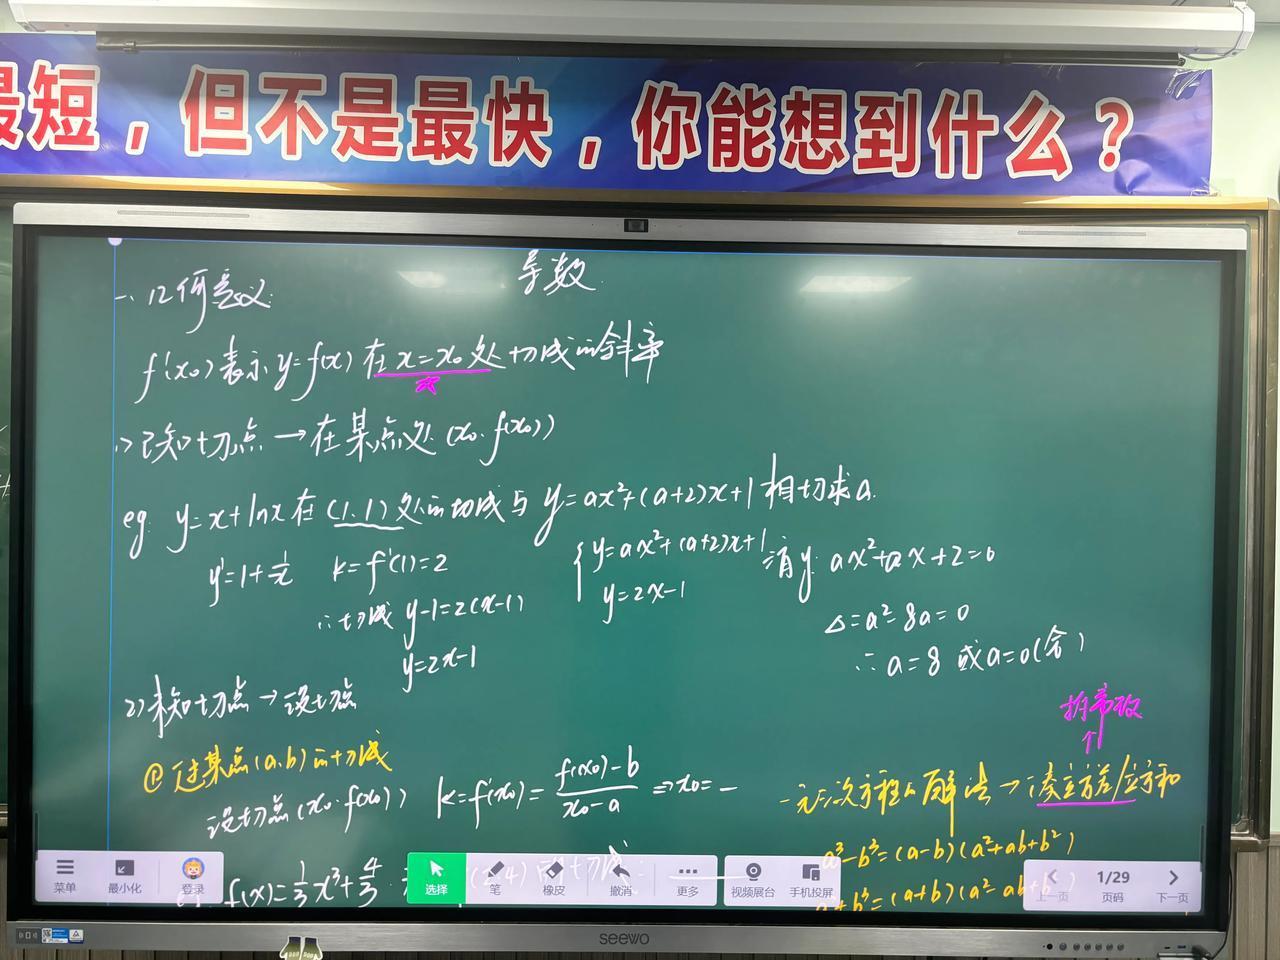 最短，但不是最快，你能想到什么？
导数
一、几何意义
f'(x₀)表示y=f(x)在x=x₀处切线的斜率
1)已知切点→在某点处(x₀.f(x₀))
eg. y=x+lnx在(1.1)处的切线与y=ax²+(a+2)x+1相切求a.
y'=1+1/x k=f'(1)=2
∴切线 y-1=2(x-1)
y=2x-1
{y=ax²+(a+2)x+1
y=2x-1
消y: ax²+ax+2=0
Δ=a²-8a=0
∴a=8 或a=0(舍)
2)未知切点→设切点
①过某点(a.b)的切线
设切点(x₀.f(x₀)) k=f'(x₀)=(f(x₀)-b)/(x₀-a) ⇒x₀=-
↑
一元三次方程的解法→凑立方差/立方和
a³-b³=(a-b)(a²+ab+b²)
a³+b³=(a+b)(a²-ab+b
f(x)=1/3x³+4/3 (2.4)的切线:
菜单
最小化
登录
选择
笔
橡皮
撤消
更多
视频展台
手机投屏
上一页
1/29
页码
下一页
seewo